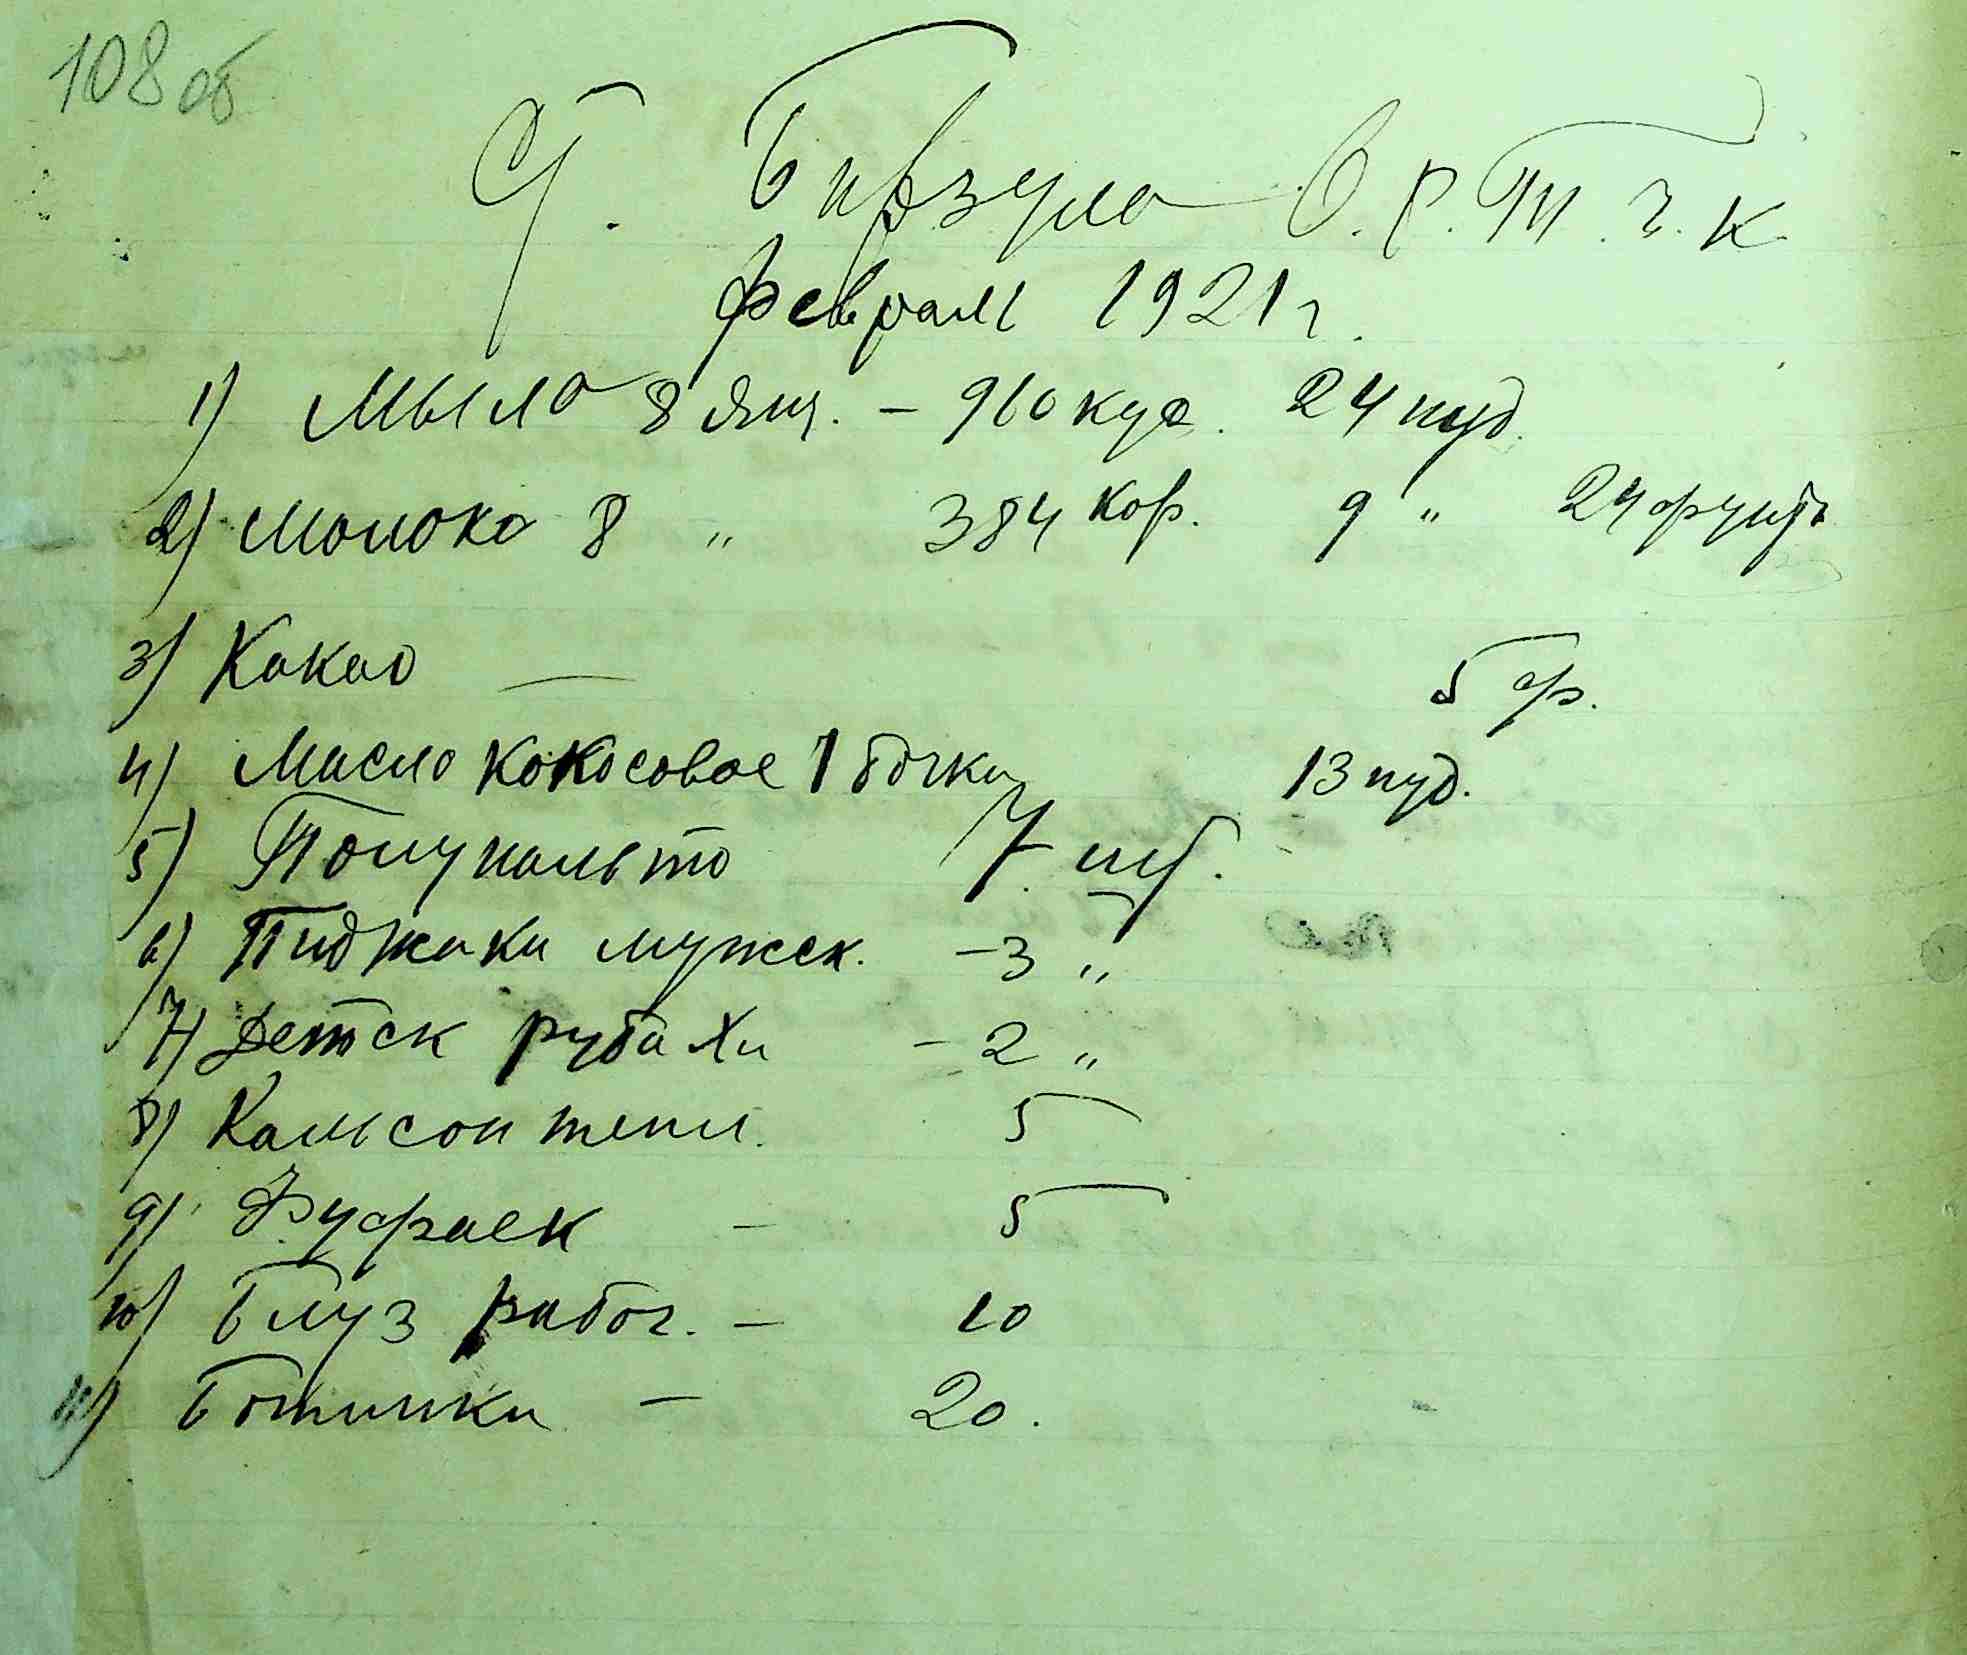 108 об
Ст. Бирзула О.Р.Т.Ч.К
февраль 1921 г.
1) Мыло 8 ящ. – 960 кус. 24 пуд.
2) Молоко 8 " 384 кор. 9 " 24 фунт
3) Какао — 5 ф.
4) Масло кокосовое 1 бочка 13 пуд.
5) Полупальто 7 шт.
6) Пиджаки мужск. – 3 "
7) Детск рубахи – 2 "
8) Кальсон тепл. 5
9) Фуфаек – 5
10) Блуз рабоч. – 10
11) Ботинки – 20.